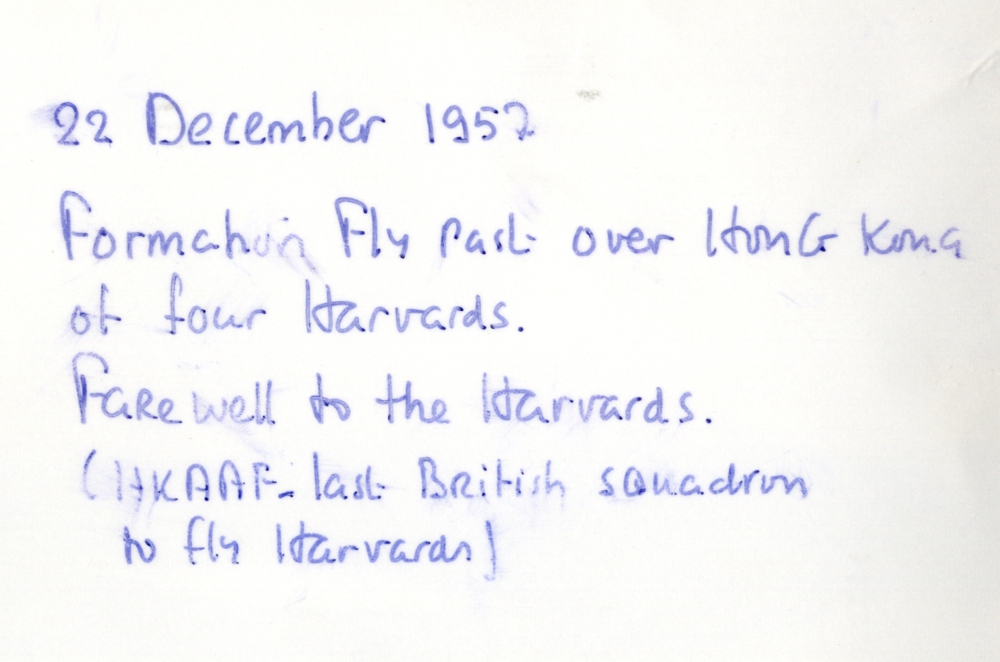 22 December 1957
Formation Fly past over Hong Kong
of four Harvards.
Farewell to the Harvards.
(HKAAF - last British squadron
to fly Harvards)